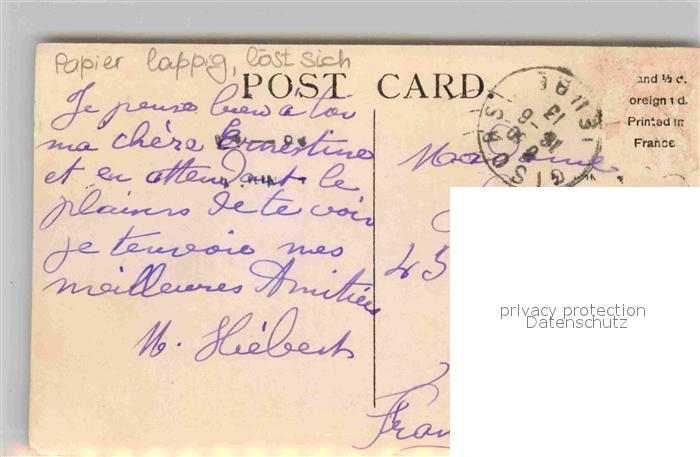 Papier lappig, löst sich
POST CARD.
and ½ c.
oreign 1 d.
Printed in
France
GISORS
13
Je pense bien à toi
ma chère Ernestine
et en attendant le
plaisir de te voir
je t'envoie mes
meilleures Amitiés
M. Hébert
Madame
45
Fran
privacy protection
Datenschutz